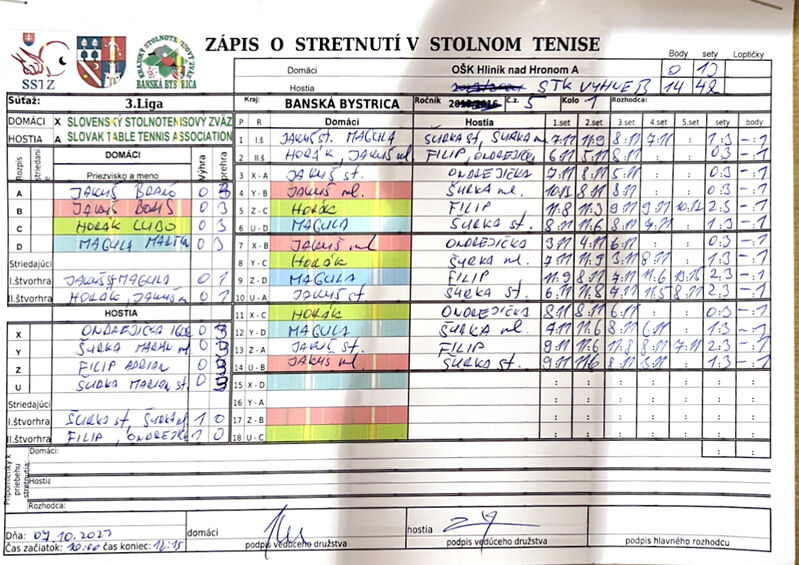 ZÁPIS O STRETNUTÍ V STOLNOM TENISE
SSTZ
KRAJSKÝ STOLNOTENISOVÝ ZVÄZ
BANSKÁ BYSTRICA
Body sety Loptičky
Domáci OŠK Hliník nad Hronom A 0 13
Hostia STK VYHNE B 14 42
Súťaž: 3.Liga Kraj: BANSKÁ BYSTRICA Ročník Č.z. 5 Kolo 1 Rozhodca:
DOMÁCI X SLOVENSKÝ STOLNOTENISOVÝ ZVÄZ
HOSTIA A SLOVAK TABLE TENNIS ASSOCIATION
P R Domáci Hostia 1.set 2.set 3.set 4.set 5.set sety body
Rozpis striedanie DOMÁCI Výhra prehra
Priezvisko a meno
A JAKUŠ 0 3
B JAKUŠ BORIS 0 3
C HORÁK ĽUBO 0 3
D MAGULA MARTIN 0 3
Striedajúci
I.štvorhra JAKUŠ MAGULA 0 1
II.štvorhra HORÁK, JAKUŠ ml 0 1
HOSTIA
X ONDREJIČKA 0
Y ŠURKA MARIAN ml 0
Z FILIP ADRIAN 0
U ŠURKA MARIAN st. 0
Striedajúci
I.štvorhra ŠURKA st, ŠURKA ml 1 0
II.štvorhra FILIP, ONDREJIČKA 1 0
1 I.š JAKUŠ st. MAGULA ŠURKA st, ŠURKA ml 7:11 11:9 8:11 7:11 : 1:3 -:1
2 II.š HORÁK, JAKUŠ ml FILIP, ONDREJIČKA 6:11 5:11 8:11 : : 0:3 -:1
3 X - A JAKUŠ st. ONDREJIČKA 7:11 8:11 5:11 : : 0:3 -:1
4 Y - B JAKUŠ ml. ŠURKA ml. 8:11 6:11 : : 0:3 -:1
5 Z - C HORÁK FILIP 11:8 11:9 9:11 9:11 10:12 2:3 -:1
6 U - D MAGULA ŠURKA st. 8:11 : 1:3 -:1
7 X - B JAKUŠ ml ONDREJIČKA 3:11 4:11 6:11 : : 0:3 -:1
8 Y - C HORÁK ŠURKA ml 7:11 11:9 3:11 8:11 : 1:3 -:1
9 Z - D MAGULA FILIP 11:9 8:11 7:11 11:6 2:3 -:1
10 U - A JAKUŠ st ŠURKA st. 6:11 11:8 7:11 11:5 8:11 2:3 -:1
11 X - C HORÁK ONDREJIČKA 8:11 8:11 6:11 : : 0:3 -:1
12 Y - D MAGULA ŠURKA ml. 7:11 11:6 8:11 6:11 : 1:3 -:1
13 Z - A JAKUŠ st. FILIP 9:11 11:6 11:8 8:11 7:11 2:3 -:1
14 U - B JAKUŠ ml ŠURKA st. 9:11 11:6 8:11 : 1:3 -:1
15 X - D : : : : : : :
16 Y - A : : : : : : :
17 Z - B : : : : : : :
18 U - C : : : : : : :
: :
Pripomienky k priebehu stretnutia:
Domáci:
Hostia
Rozhodca:
Dňa: 07.10.2022 domáci hostia
Čas začiatok: 10:00 čas koniec: 12:15 podpis vedúceho družstva podpis vedúceho družstva podpis hlavného rozhodcu